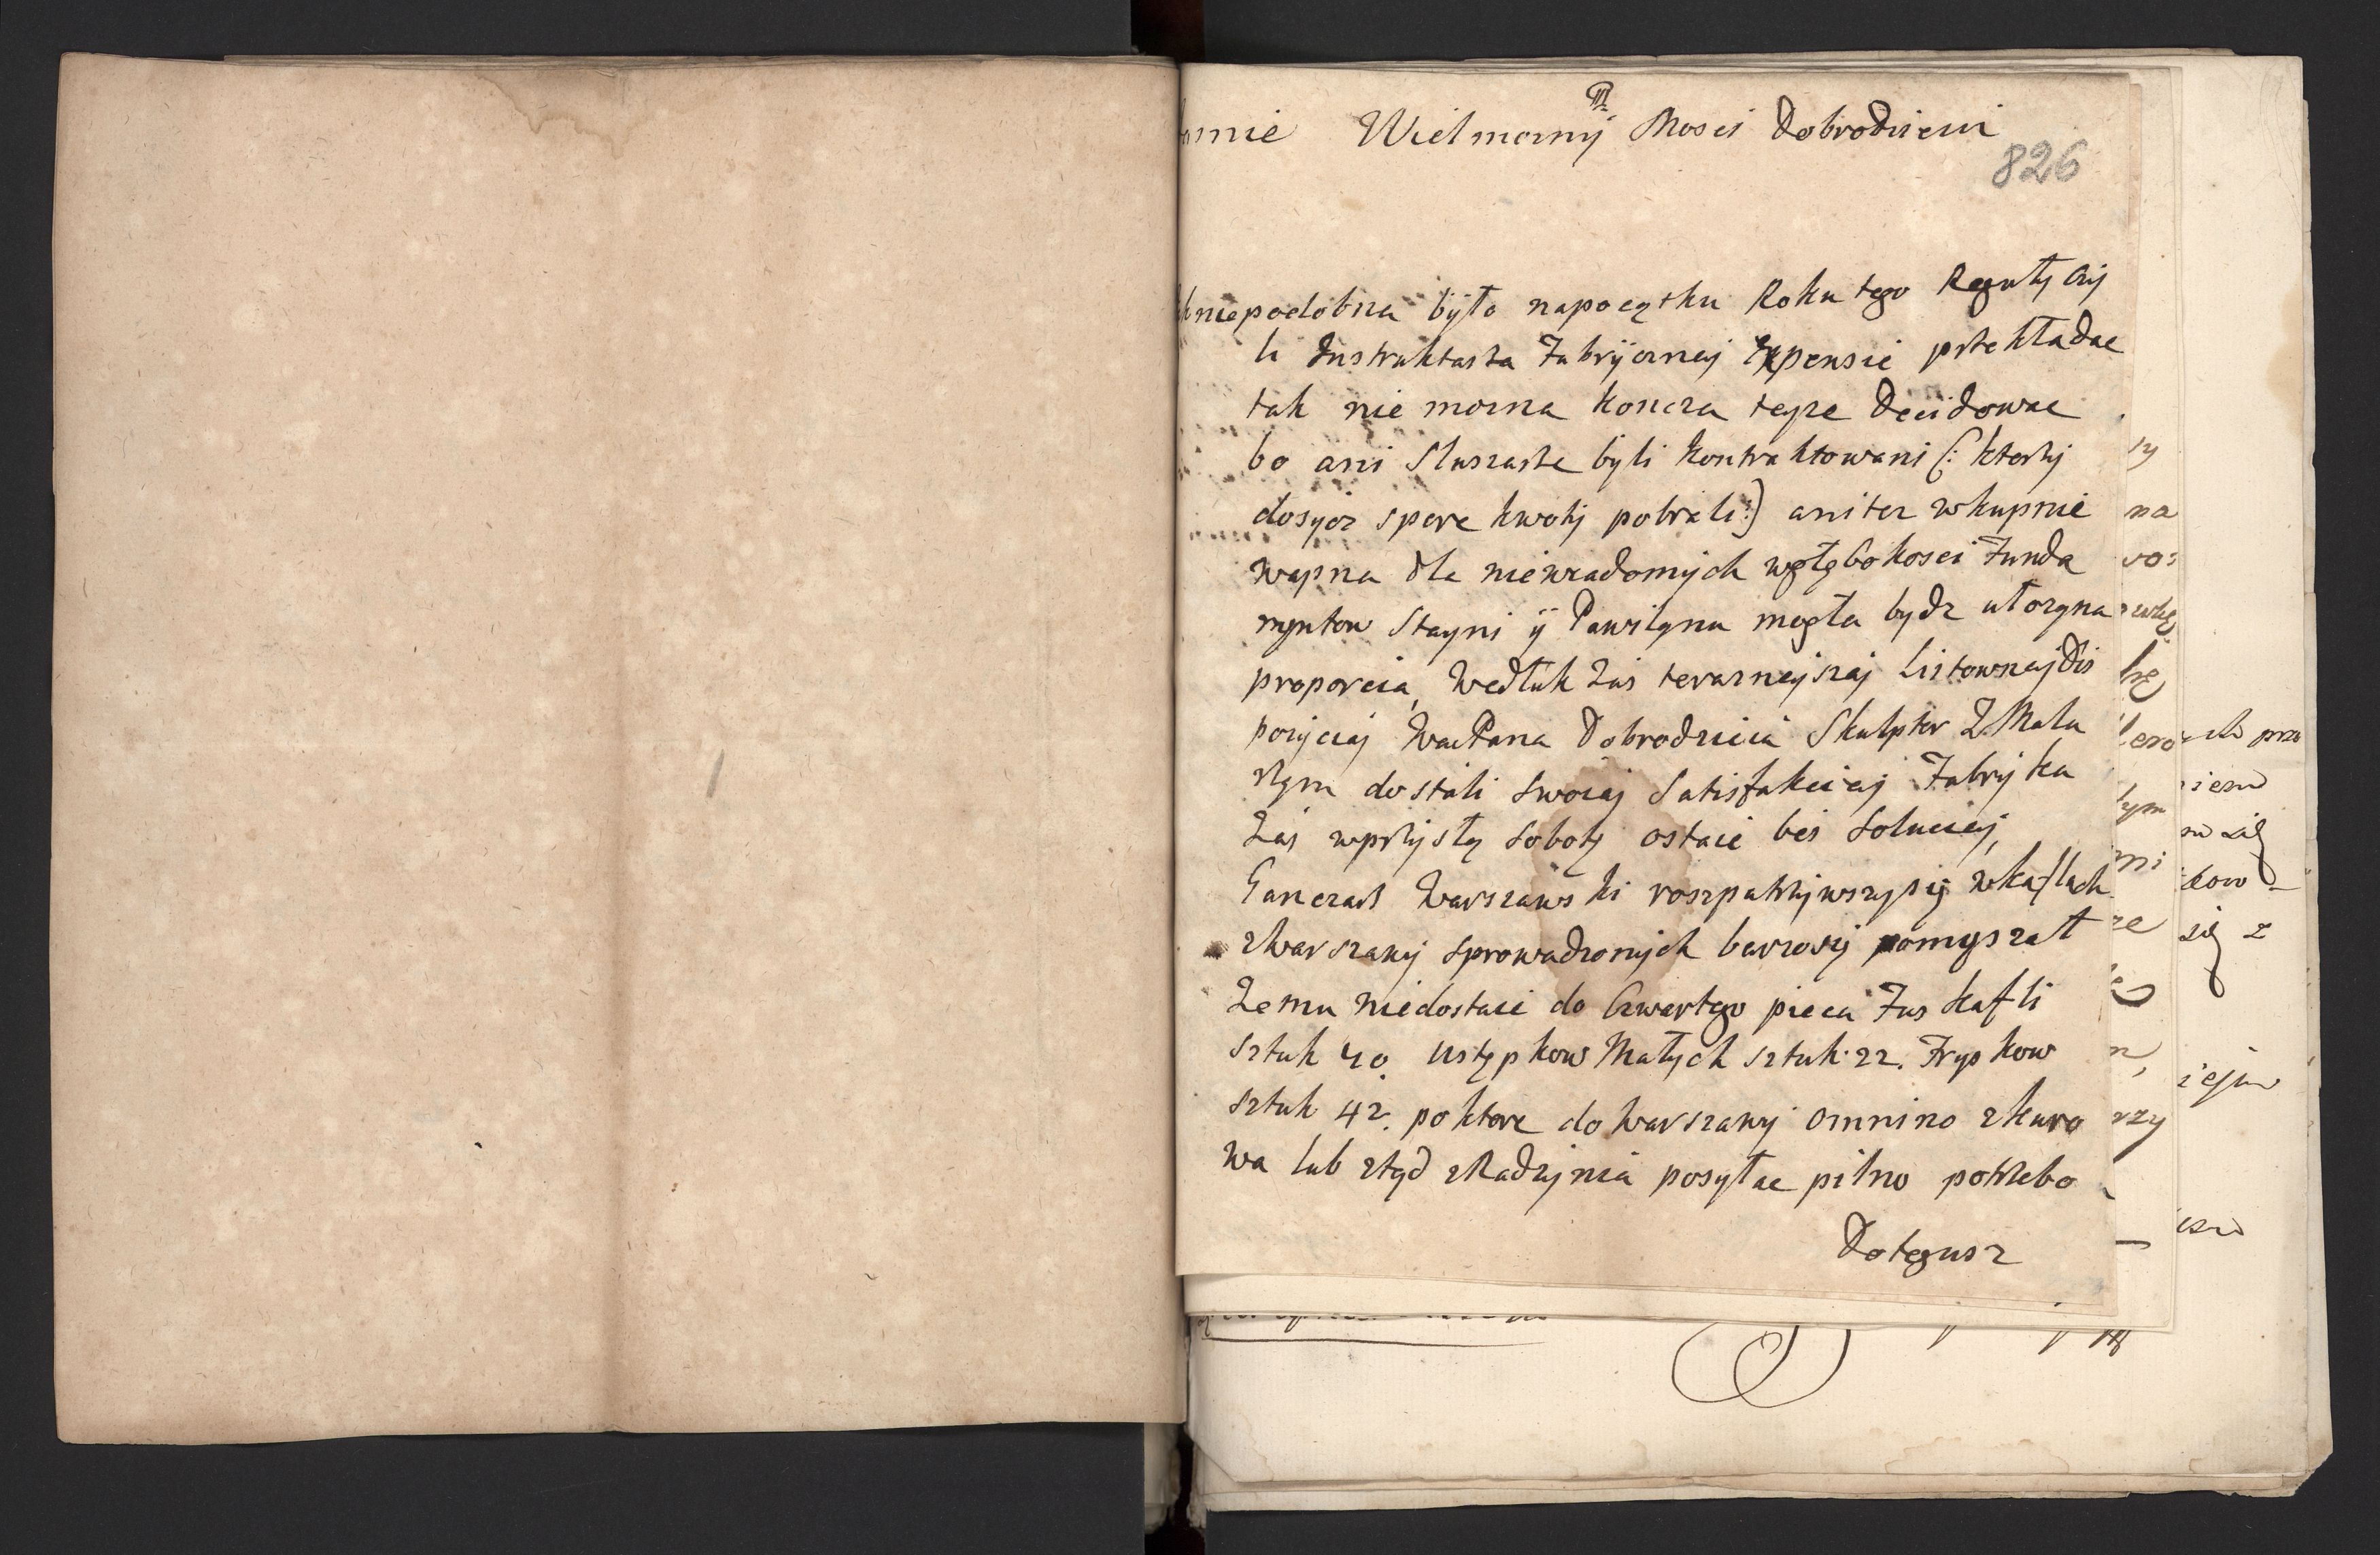 mnie Wielmorny Mosci Dobrodzieui
826
niepodobna było napoczthu Roku tego Reguły Czy
li Instruktarza Fabryicznej Expensie przekładac
tak nie morna koncza teyze Decidowac
bo ani Slusarze byli kontraktowani (: ktorzy
dosycz spore kwoty pobrali :) anitez wkupnie
wapna dla niewiadomych wgłębokosci Funda
mentow Stayni y Pawilonu mogła bydz utozona
proporcia, Wedłuk Zas terazneyszey Listowney Dis
pozyciey WacPana Dobrodzieia Skulptor Z Mala
rzem dostali swoiey Satisfakciey Fabryka
Zas wprzyszłą Sobotę ostaie bes Solucicy,
Ganczarz Warszawski roszpatrzywszy się wkaflach
zWarszawy sprowadzonych barzo się pomyszał
Ze mu niedostaie do Czwartego pieca Fus kafli
Sztuk 40. Ustępkow Małych sztuk 22. Fryskow
sztuk 42. poktore do Warszawy omnino zkuro
wa lub ztąd zRadzynia posyłac pilno potrzebo
Dotegusz